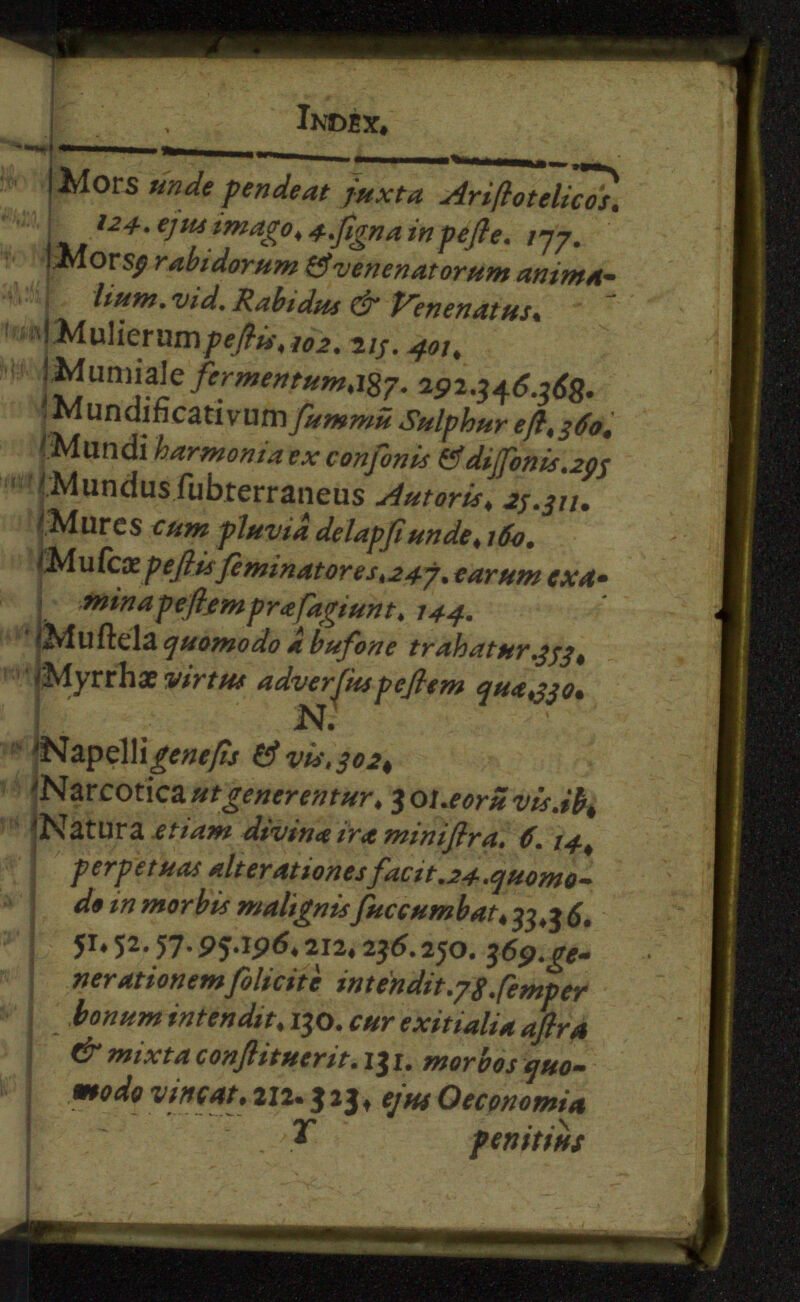 INDEX.
Mors unde pendeat juxta Ariſtotelicos.
124. ejus imago, 4. ſigna in peſte. 177.
Morsꝰ rabidorum & venenatorum anima-
lium. vid. Rabidus & Venenatus.
Mulierum peſtis, 102. 215. 401.
Mumiale fermentum, 187. 292. 346. 368.
Mundificativum ſummũ Sulphur eſt, 360.
Mundi harmonia ex conſonis & diſſonis. 295
Mundus ſubterraneus Autoris, 25. 311.
Mures cum pluviâ delapſi unde, 160.
Muſcæ peſtis ſeminatores, 247. earum exa-
mina peſtem præſagiunt, 144.
Muſtela quomodo à bufone trahatur. 353.
Myrrhæ virtus adverſus peſtem quæ, 330.
N.
Napelli geneſis & vis, 302,
Narcotica ut generentur, 301. eorũ vis. ib,
Natura etiam divinæ iræ miniſtra. 6. 14,
perpetuas alterationes facit. 24. quomo-
do in morbis malignis ſuccumbat, 33, 36.
51. 52. 57. 95. 196, 212, 236. 250. 369. ge-
nerationem ſolicitè intendit. 78. ſemper
bonum intendit, 130. cur exitialia aſtra
& mixta conſtituerit. 131. morbos quo-
modo vincat. 212. 323, ejus Oeconomia
T penitiùs